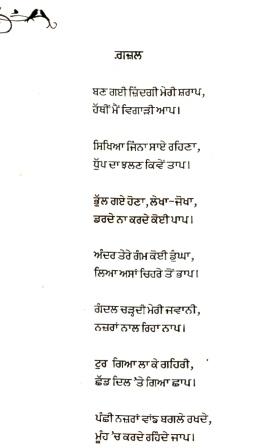 ਗ਼ਜ਼ਲ
ਬਣ ਗਈ ਜ਼ਿੰਦਗੀ ਮੇਰੀ ਸ਼ਰਾਪ,
ਹੱਥੀਂ ਮੈਂ ਵਿਗਾੜੀ ਆਪ।
ਸਿਖਿਆ ਜਿੰਨਾ ਸਾਏ ਰਹਿਣਾ,
ਧੁੱਪ ਦਾ ਝਲਣ ਕਿਵੇਂ ਤਾਪ।
ਭੁੱਲ ਗਏ ਹੋਣਾ, ਲੇਖਾ-ਜੋਖਾ,
ਡਰਦੇ ਨਾ ਕਰਦੇ ਕੋਈ ਪਾਪ।
ਅੰਦਰ ਤੇਰੇ ਗੰਮ ਕੋਈ ਡੂੰਘਾ,
ਲਿਆ ਅਸਾਂ ਚਿਹਰੇ ਤੋਂ ਭਾਪ।
ਗੰਦਲ ਚੜ੍ਹਦੀ ਮੇਰੀ ਜਵਾਨੀ,
ਨਜ਼ਰਾਂ ਨਾਲ ਰਿਹਾ ਨਾਪ।
ਟੁਰ ਗਿਆ ਲਾ ਕੇ ਗਹਿਰੀ,
ਛੱਡ ਦਿਲ 'ਤੇ ਗਿਆ ਛਾਪ।
ਪੰਛੀ ਨਜ਼ਰਾਂ ਵਾਂਙ ਬਗਲੇ ਰਖਦੇ,
ਮੂੰਹ 'ਚ ਕਰਦੇ ਰਹਿੰਦੇ ਜਾਪ।